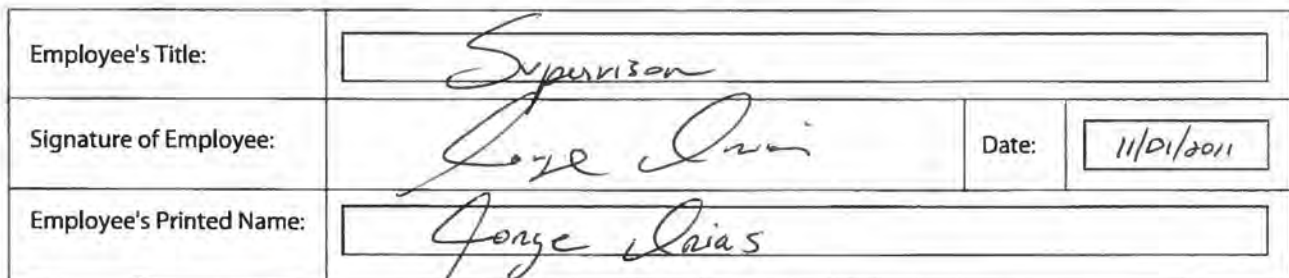 Employee's Title: Supervisor
Signature of Employee: Jorge Irias Date: 11/01/2011
Employee's Printed Name: Jorge Irias